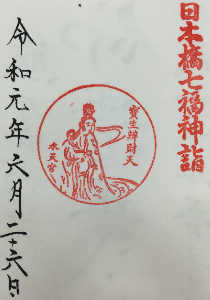 日本橋七福神詣
寳生辨財天
水天宮
令和元年六月二十六日